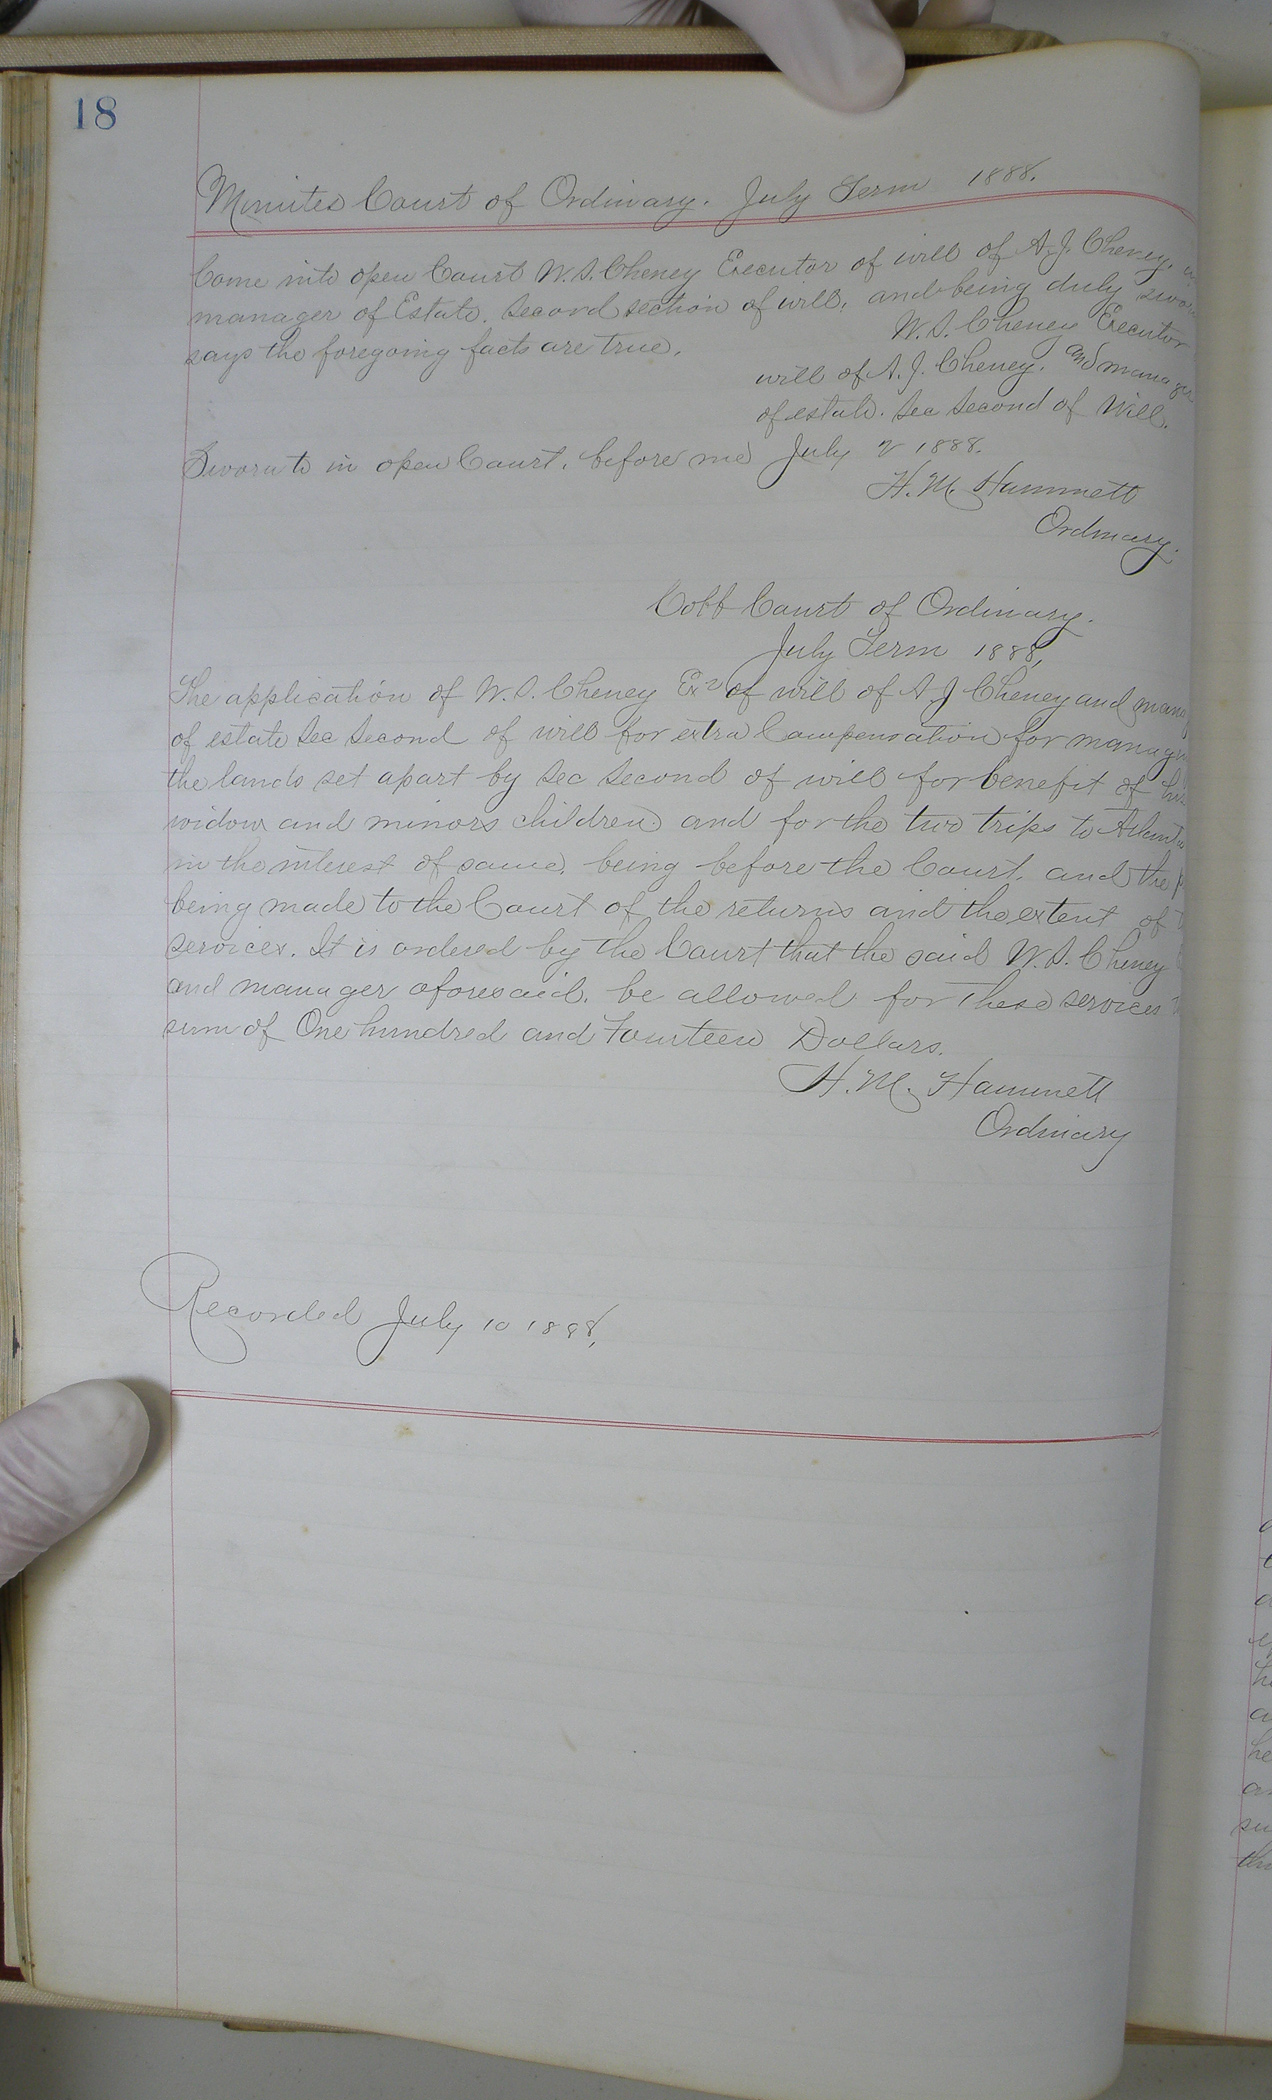 18
Minutes Court of Ordinary. July Term 1888.
Come into open Court W.S. Cheney Executor of will of A.J. Cheney,
manager of Estate. Second section of will, and being duly sworn
says the foregoing facts are true.
W.S. Cheney Executor
will of A.J. Cheney. and manager
of estate. Sec Second of Will.
Sworn to in open Court, before me July 2 1888.
H.M. Hammett
Ordinary.
Cobb Court of Ordinary.
July Term 1888,
The application of W.S. Cheney Exr of will of A J Cheney and
of estate Sec Second of will for extra Compensation for
the lands set apart by Sec Second of will for benefit of his
widow and minors children and for the two trips to Atlanta
in the interest of same, being before the Court, and the
being made to the Court of the returns and the extent of
services. It is ordered by the Court that the said W.S. Cheney
and manager aforesaid, be allowed for these services
sum of One hundred and Fourteen Dollars.
H.M. Hammett
Ordinary
Recorded July 10 1888,